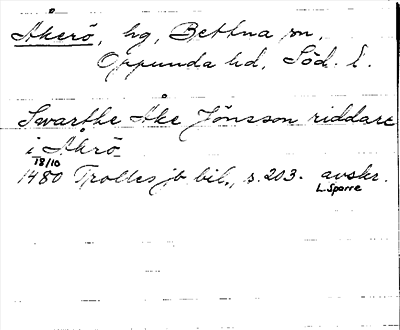 Åkerö, hg, Bettna sn,
Oppunda hd, Söd. l.
Swarthe Åke Jönsson riddare
i Åkrö
18/10
1480 Trolles jb bil., s. 203. avskr.
L. Sparre